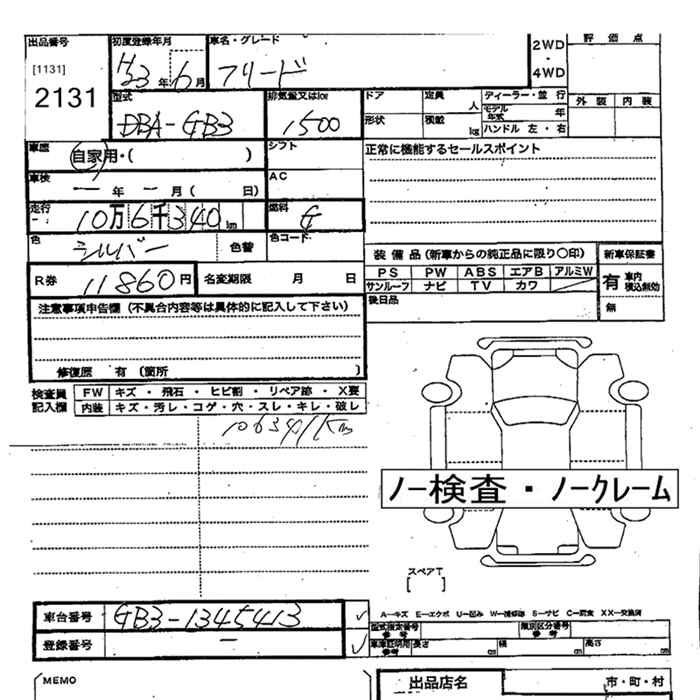 出品番号 初度登録年月 車名・グレード 2WD ・ 4WD 評価点
[1131]
2131
H23年6月 フリード
型式 排気量又はkor ドア 定員 人 ディーラー・並行 外装 内装
DBA-GB3 1500 形状 積載 kg モデル年式 年
ハンドル 左・右
車歴 自家用・( ) シフト 正常に機能するセールスポイント
車検 ー年ー月( 日) AC
走行 10万6千340km 燃料 G
色 シルバー 色替 色コード
装備品(新車からの純正品に限り〇印) 新車保証書
R券 11860円 名変期限 月 日
PS PW ABS エアB アルミW 有 車内積込無効
サンルーフ ナビ TV カワ
後日品 無
注意事項申告欄(不具合内容等は具体的に記入して下さい)
修復歴 有(箇所 )
検査員記入欄 FW キズ・飛石・ヒビ割・リペア跡・X要
内装 キズ・汚レ・コゲ・穴・スレ・キレ・破レ
106341Km
ノー検査・ノークレーム
スペアT
[ ]
車台番号 GB3-1345413 ✓
A―キズ E―エクボ U―凹ミ W―補修跡 S―サビ C―腐食 XX―交換済
型式指定番号 参考 類別区分番号 参考
登録番号 ー ✓
車庫証明用 参考 長さ cm 幅 cm 高さ cm
MEMO 出品店名 市・町・村